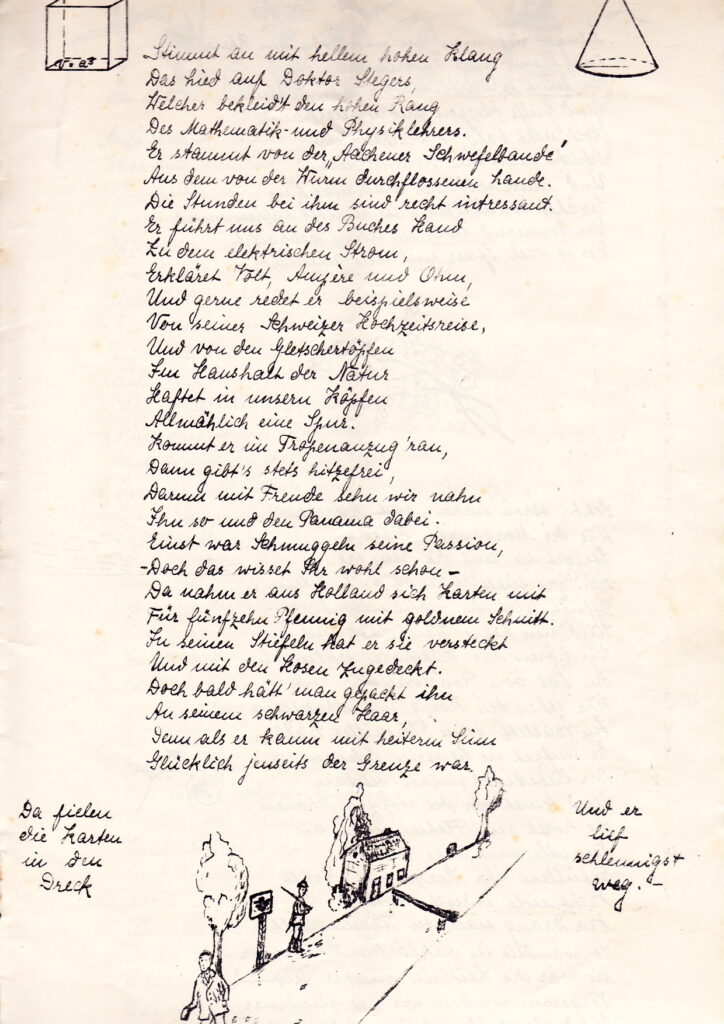 V = a³
Stimmt an mit hellem hohen Klang
Das Lied auf Doktor Stegers,
Welcher bekleid't den hohen Rang
Des Mathematik- und Physiklehrers.
Er stammt von der „Aachener Schwefelbande"
Aus dem von der Wurm durchflossenen Lande.
Die Stunden bei ihm sind recht intressant.
Er führt uns an des Buches Hand
Zu dem elektrischen Strom,
Erkläret Volt, Ampère und Ohm,
Und gerne redet er beispielsweise
Von seiner Schweizer Hochzeitsreise,
Und von den Gletschertöpfen
Im Haushalt der Natur
Haftet in unsern Köpfen
Allmählich eine Spur.
Kommt er im Tropenanzug 'ran,
Dann gibt's stets hitzefrei,
Darum mit Freude sehn wir nahn
Ihn so und den Panama dabei.
Einst war Schmuggeln seine Passion,
- Doch das wisset Ihr wohl schon -
Da nahm er aus Holland sich Karten mit
Für fünfzehn Pfennig mit goldnem Schnitt.
In seinen Stiefeln hat er sie versteckt
Und mit den Hosen zugedeckt.
Doch bald hätt' man gepackt ihn
An seinem schwarzen Haar,
Denn als er kaum mit heiterm Sinn
Glücklich jenseits der Grenze war.
Da fielen
die Karten
in den
Dreck
Und er
lief
schleunigst
weg. -